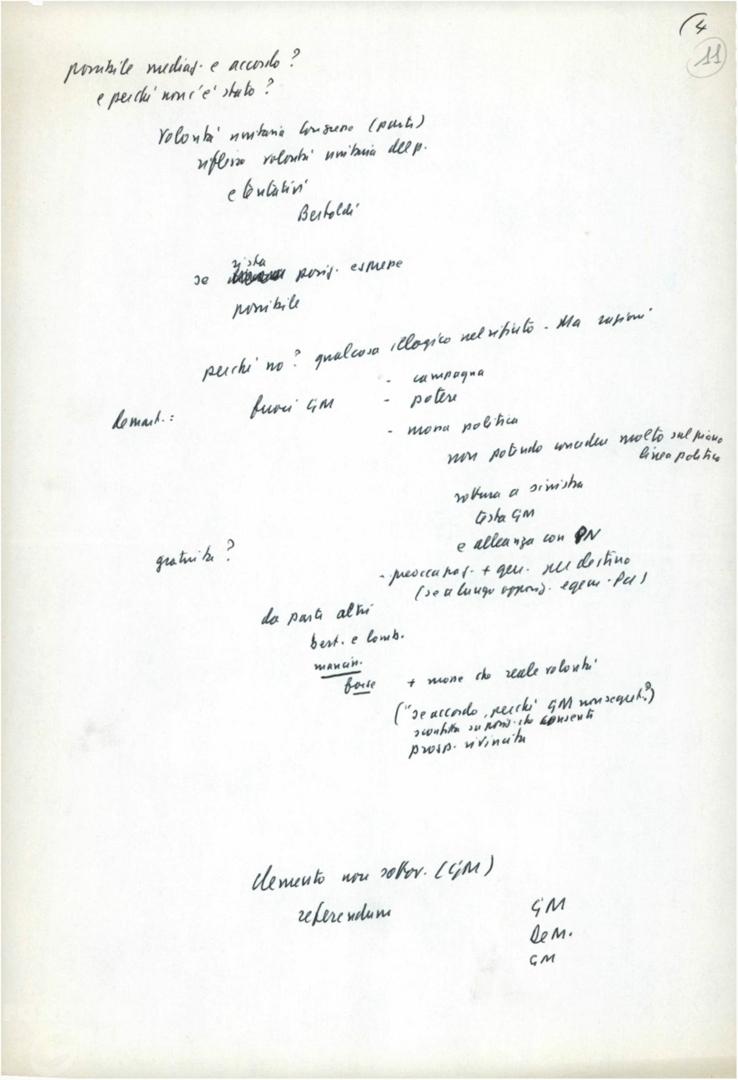 (4
11
possibile mediaz. e accordo?
e perché non c'è stato?
volontà unitaria Congresso (parte)
riflesso volontà unitaria del p.
e tentativi
Bertoldi
vista
se posiz. esprese
possibile
perché no? qualcosa illogico nel rifiuto - Ma ragioni
- campagna
Demart.: fuori GM - potere
- mossa politica
non potendo concedere molto sul piano
linea politica
rottura a sinistra
testa GM
e alleanza con PN
gratuita?
- preoccupaz. + gen. sul destino
(se a lungo opposiz. egem. Pci)
da parte altri
bert. e lomb.
mancin.
forse + mosse che reale volontà
("se accordo, perché GM non segret.?)
sconfitta su posiz. che consenta
prosp. rivincita
elemento non sottov. (GM)
referendum GM
De M.
GM